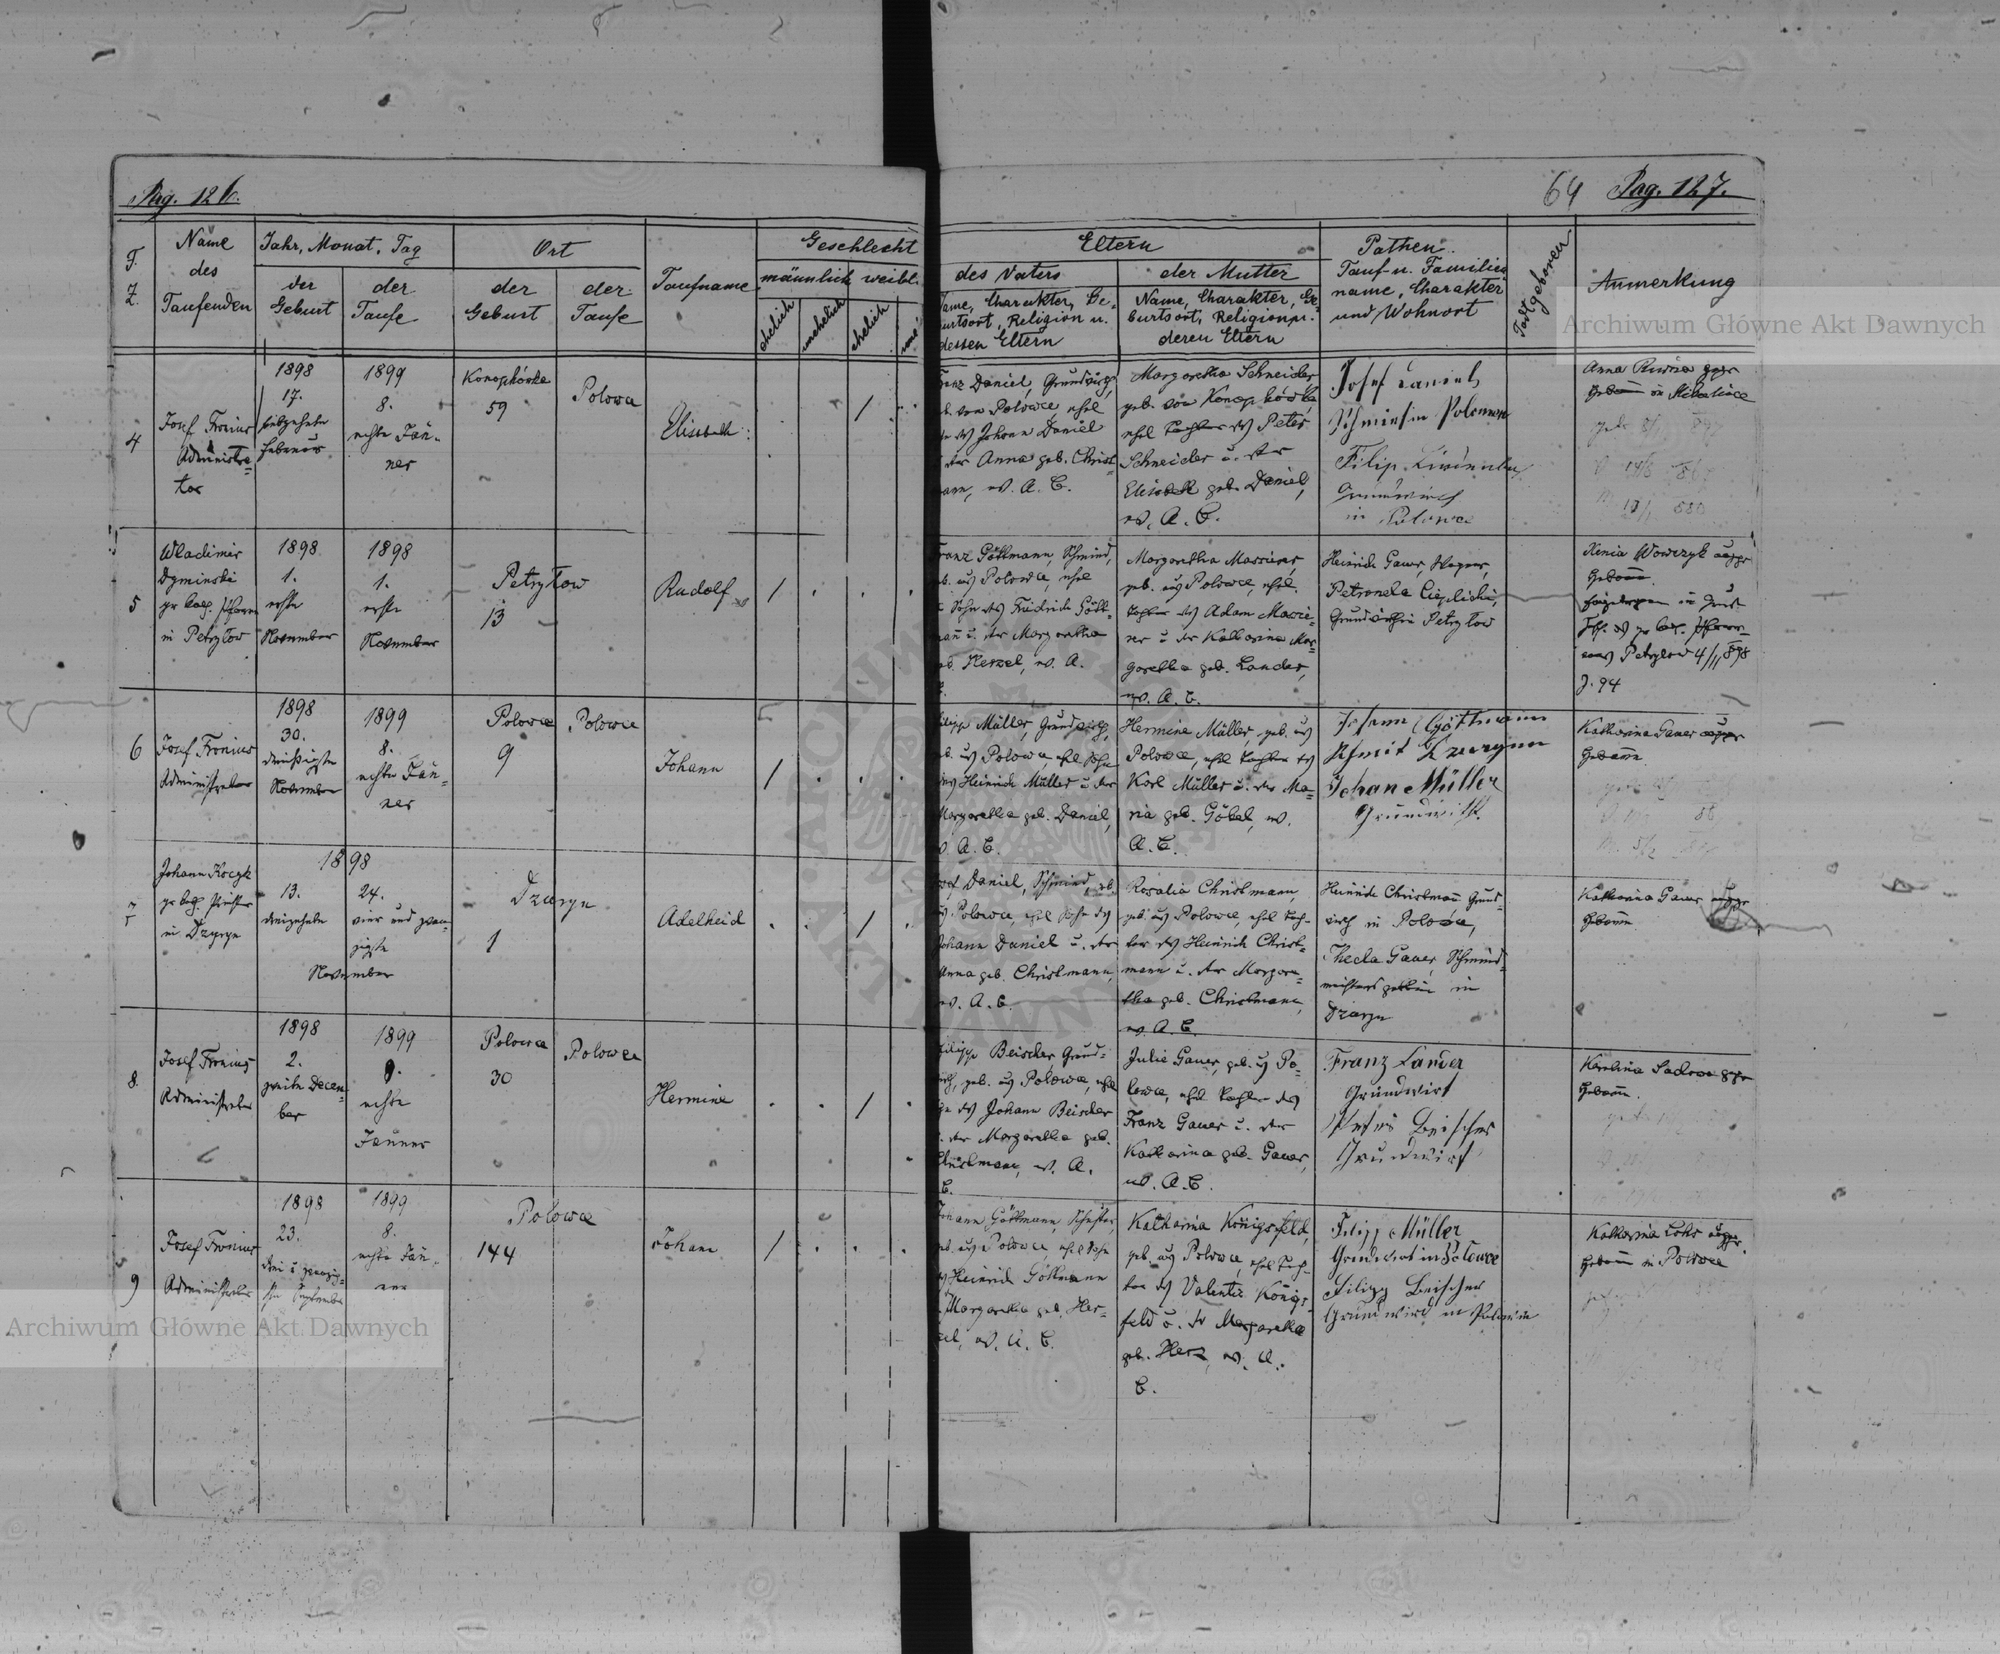 Pag. 126.
64 Pag. 127.
F. Z.
Name
des
Taufenden
Jahr, Monat, Tag
der
Geburt
der
Taufe
Ort
der
Geburt
der
Taufe
Taufname
Geschlecht
männlich weibl.
ehelich
unehelich
ehelich
Eltern
des Vaters
Name, Charakter, Ge-
burtsort, Religion u.
dessen Eltern
der Mutter
Name, Charakter, Ge-
burtsort, Religion u.
deren Eltern
Pathen
Tauf- u. Familien
name, Charakter
und Wohnort
Todtgeboren
Anmerkung
4
Josef Fronius
Administra-
tor
1898
17.
1899
8.
achte Jän-
ner
Konopkówka
59
Polowce
Elisabeth
/
Franz Daniel, Grundwirth,
geb. von Polowce, ehel
des Johann Daniel
der Anna geb. Christ-
mann, ev. A. C.
Margaretha Schneider
geb. von Konopkówka
ehel Tochter des Peter
Schneider u. der
Elisabeth geb. Daniel,
ev. A. C.
Josef Daniel
Filip
in Polowce
Anna
5
Wladimir
Dyminski
gr. kat. Pfarrer
in Petryłow
1898
1.
erste
November
1898
1.
erste
November
Petryłow
13
Rudolf
/
Franz Göttmann, Schmied,
geb. aus Polowce, ehel
Sohn des Friedrich Gött-
mann u. der Margaretha
geb. Herzel, ev. A.
Margaretha
geb. aus Polowce, ehel.
Tochter des Adam
u. der Katharina Mar-
garetha geb. Lander,
ev. A. C.
Heinrich Gauer, Wagner,
Petronela Cieplicki,
Grundwirthin Petryłow
Xenia Wowczyk
Hebamme.
Petrylow 4/11 898
J. 94
6
Josef Fronius
Administrator
1898
30.
dreißigste
November
1899
8.
achte Jän-
ner
Polowce
9
Polowce
Johann
/
Philipp Müller, Grundwirth,
geb. aus Polowce, ehel Sohn
des Heinrich Müller u. der
Margaretha geb. Daniel,
ev. A. C.
Hermine Müller, geb. aus
Polowce, ehel Tochter des
Karl Müller u. der Ma-
ria geb. Göbel, ev.
A. C.
Johann Göttmann
Johan Müller
Grundwirth.
Katharina Gauer
Hebamme
7
Johann
gr. kat. Priester
in Dzuryn
1898
13.
dreizehnte
24.
vier und zwan-
zigste
November
Dzuryn
1
Adelheid
/
Josef Daniel, Schmied, geb.
aus Polowce, ehel Sohn des
Johann Daniel u. der
Anna geb. Christmann,
ev. A. C.
Rosalia Christmann,
geb. aus Polowce, ehel Toch-
ter des Heinrich Christ-
mann u. der Margare-
tha geb. Christmann,
ev. A. C.
Heinrich Christmann Grund-
wirth in Polowce,
Thecla Gauer, Schmied-
meisters gattin in
Dzuryn
Katharina Gauer
Hebamme
8.
Josef Fronius
Administrator
1898
2.
zweite Decem-
ber
1899
8.
achte
Jänner
Polowce
30
Polowce
Hermine
/
Philipp Beischer, Grund-
wirth, geb. aus Polowce, ehel
Sohn des Johann Beischer
u. der Margaretha geb.
Christmann, ev. A.
C.
Julie Gauer, geb. aus Po-
lowce, ehel Tochter des
Franz Gauer u. der
Katharina geb. Gauer,
ev. A. C.
Franz Lander
Grundwirt
Peter Beischer
Grundwirt
Karolina
Hebamme.
9
Josef Fronius
Administrator
1898
23.
drei u. zwanzig-
ste September
1899
8.
achte Jän-
ner
Polowce
144
Johann
/
Johann Göttmann, Schuster,
geb. aus Polowce, ehel Sohn
des Heinrich Göttmann
u. Margaretha geb. Her-
zel, ev. A. C.
Katharina Königsfeld,
geb. aus Polowce, ehel Toch-
ter des Valentin Königs-
feld u. der Margaretha
geb. Herz, ev. A.
C.
Filipp Müller
Grundwirt in Polowce
Filipp Beischer
Grundwirt in Polowce
Katharina Lohr
Hebamme in Polowce
Archiwum Główne Akt Dawnych
Archiwum Główne Akt Dawnych